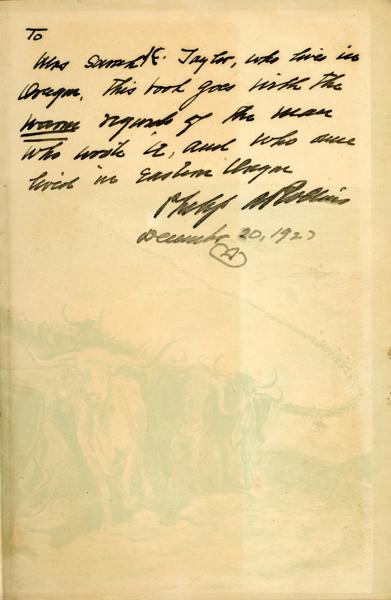 To
Mrs Sarah E. Taylor, who lives in
Oregon, this book goes with the
warm regards of the man
who wrote it, and who once
lived in Eastern Oregon
Philip A Rollins
December 20, 1927